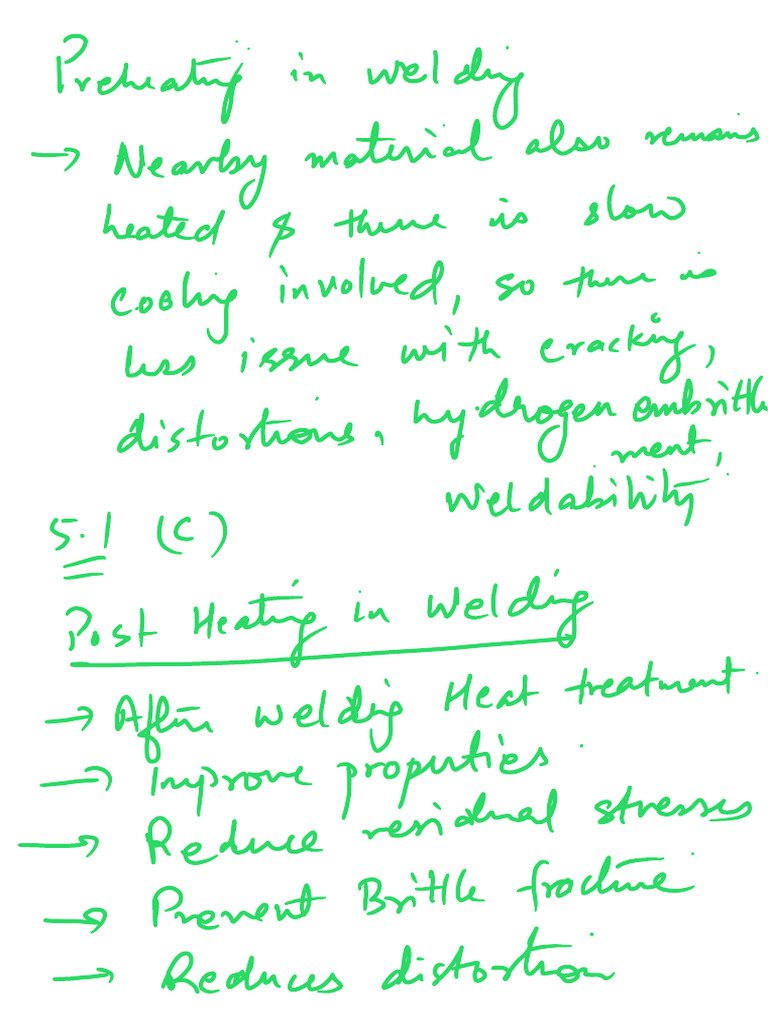 Preheating in welding
→ Nearby material also remains
heated & there is slow
cooling involved, so there is
less issue with cracking,
distortions, hydrogen embrittle
ment,
weldability
5.1 (C)
Post Heating in Welding
→ After welding Heat treatment
→ Improve properties
→ Reduce residual stresses
→ Prevent Brittle fracture
→ Reduces distortion